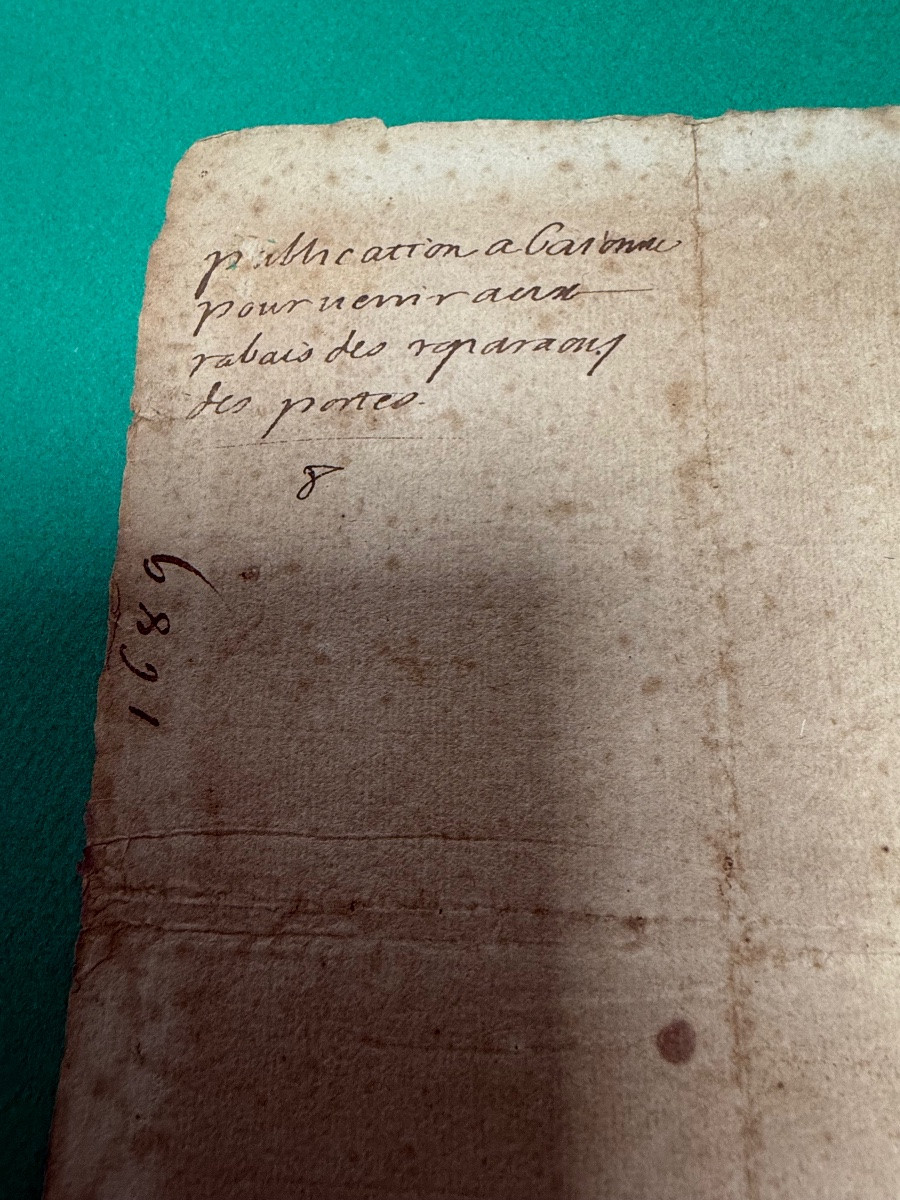 publication a Baionne
pour uenir aux
rabais des reparaons
des portes.
8
1689